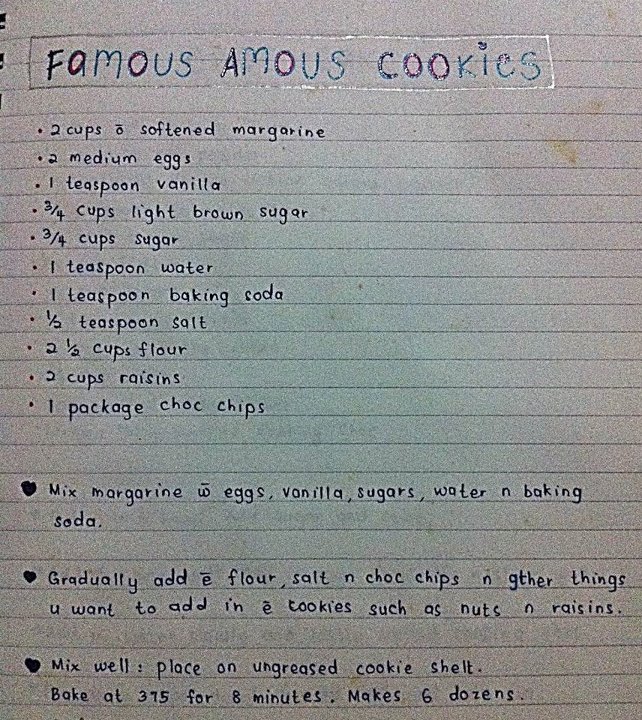 FAMOUS AMOUS COOKIES
• 2 cups ō softened margarine
• 2 medium eggs
• 1 teaspoon vanilla
• 3/4 cups light brown sugar
• 3/4 cups sugar
• 1 teaspoon water
• 1 teaspoon baking soda
• 1/2 teaspoon salt
• 2 1/2 cups flour
• 2 cups raisins
• 1 package choc chips
♥ Mix margarine w̄ eggs, vanilla, sugars, water n baking
soda.
♥ Gradually add ē flour, salt n choc chips n gther things
u want to add in ē cookies such as nuts n raisins.
♥ Mix well : place on ungreased cookie shelt.
Bake at 375 for 8 minutes. Makes 6 dozens.